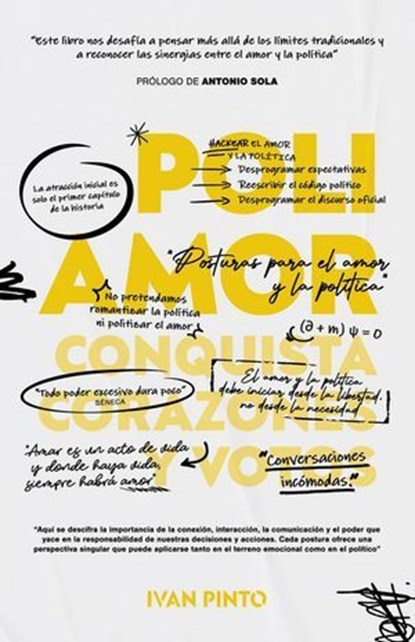 "Este libro nos desafía a pensar más allá de los límites tradicionales y
a reconocer las sinergias entre el amor y la política"
PRÓLOGO DE ANTONIO SOLA
*POLI
AMOR
HACKEAR EL AMOR
Y LA POLÍTICA
Desprogramar expectativas
Reescribir el código político
Desprogramar el discurso oficial
La atracción inicial es
solo el primer capítulo
de la historia
"Posturas para el amor
y la política"
No pretendamos
romantizar la política
ni politizar el amor
(∂ + m) ψ = 0
CONQUISTA
CORAZONES
Y VOTOS
"Todo poder excesivo dura poco"
SÉNECA
El amor y la política
debe iniciar desde la libertad,
no desde la necesidad
"Amar es un acto de vida
y donde haya vida,
siempre habrá amor"
"Conversaciones
incómodas."
"Aquí se descifra la importancia de la conexión, interacción, la comunicación y el poder que
yace en la responsabilidad de nuestras decisiones y acciones. Cada postura ofrece una
perspectiva singular que puede aplicarse tanto en el terreno emocional como en el político"
IVAN PINTO